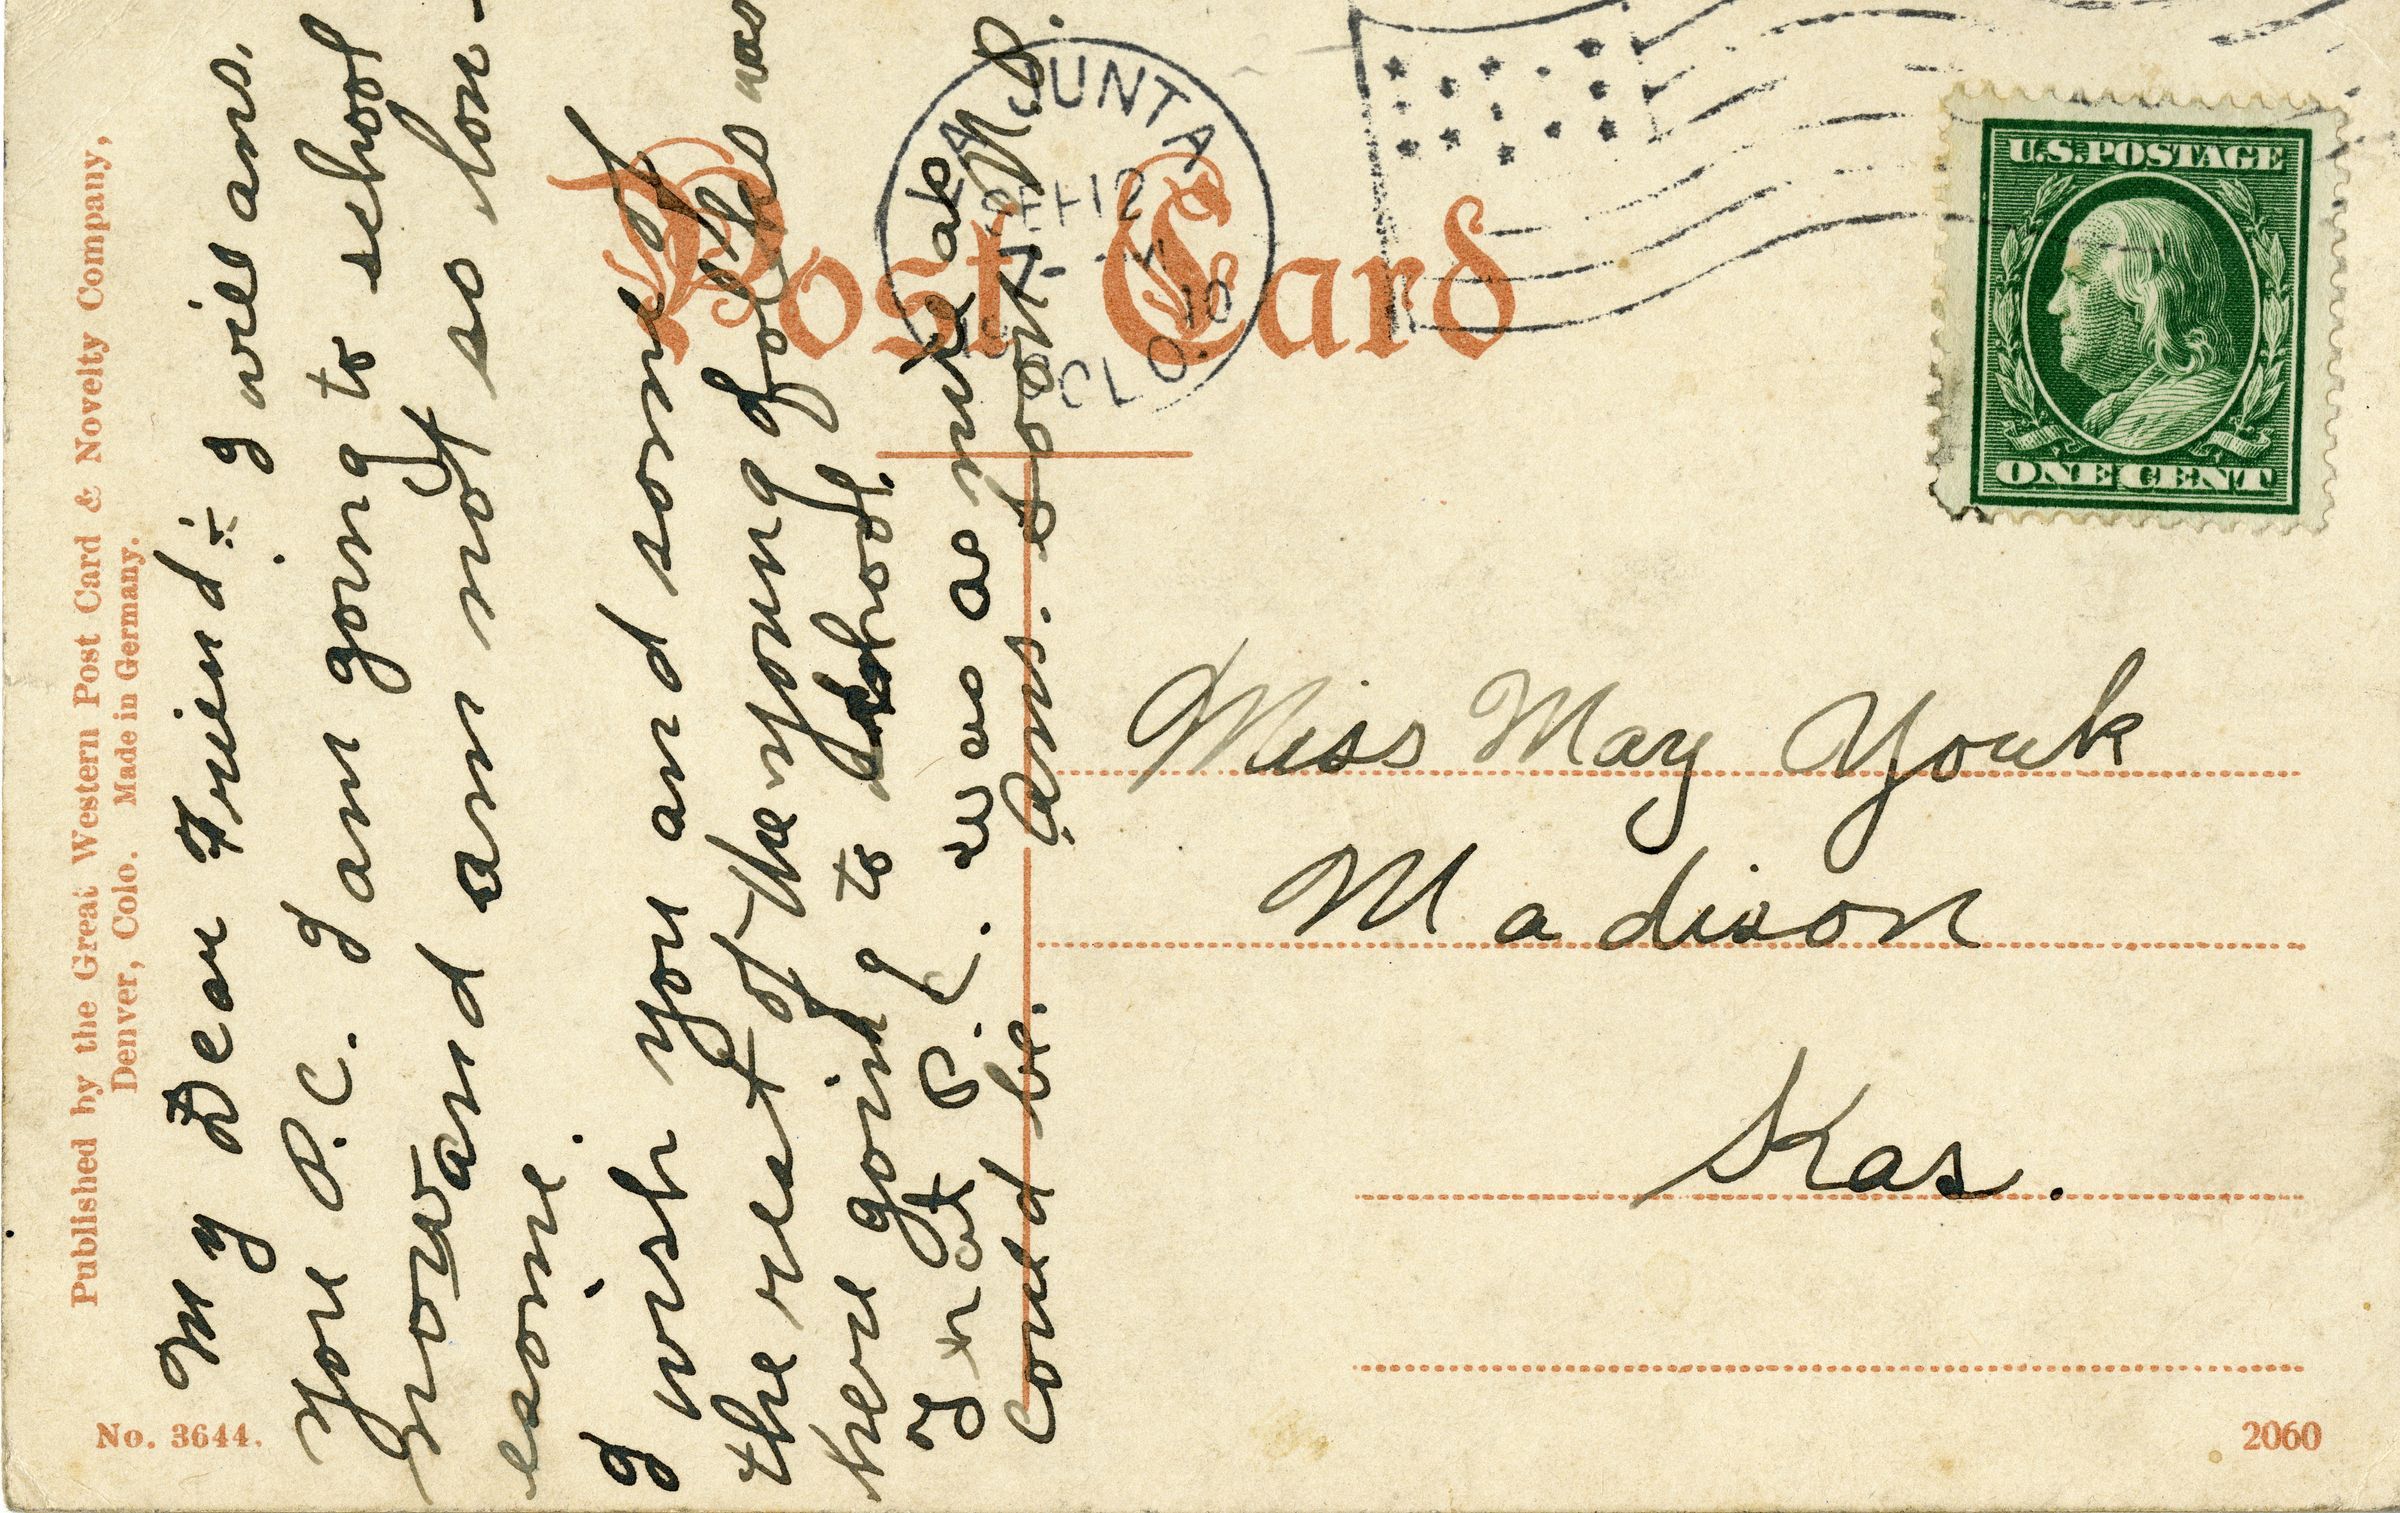 Published by the Great Western Post Card & Novelty Company,
Denver, Colo. Made in Germany.
No. 3644.
Post Card
LA JUNTA
12
10
COLO.
U.S. POSTAGE
ONE CENT
My Dear Friend ÷ I will ans.
your P.C. I am going to school
now and am not so lon-
esome.
I wish you and some of
the rest of the young folks was
here going to school.
That P.C. was as nice as
could be. Ans. soon. N.B.
Miss May Youk
Madison
Kas.
2060